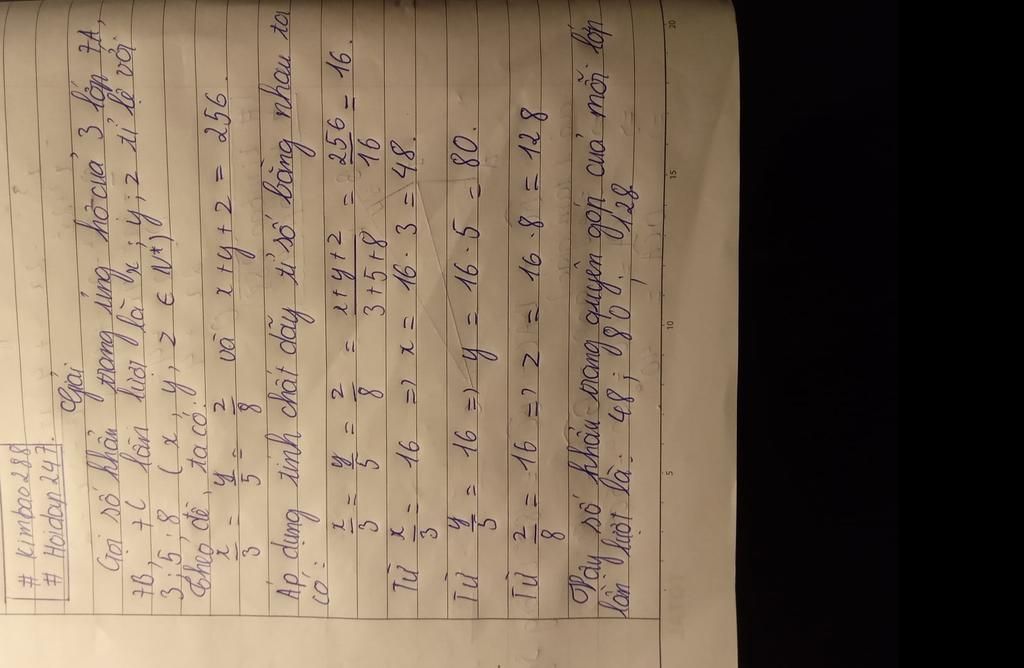 # kimbao288
# Hoidap247.
Giải
Gọi số khẩu trang ủng hộ của 3 lớp 7A,
7B, 7C lần lượt là x; y; z tỉ lệ với
3; 5; 8 ( x, y, z ∈ N*)
Theo đề, ta có:
x/3 = y/5 = z/8 và x + y + z = 256.
Áp dụng tính chất dãy tỉ số bằng nhau ta
có:
x/3 = y/5 = z/8 = x + y + z/3 + 5 + 8 = 256/16 = 16.
Từ x/3 = 16 => x = 16 · 3 = 48.
Từ y/5 = 16 => y = 16 · 5 = 80.
Từ z/8 = 16 => z = 16 · 8 = 128
Vậy số khẩu trang quyên góp của mỗi lớp
lần lượt là: 48; 80; 128
5 10 15 20